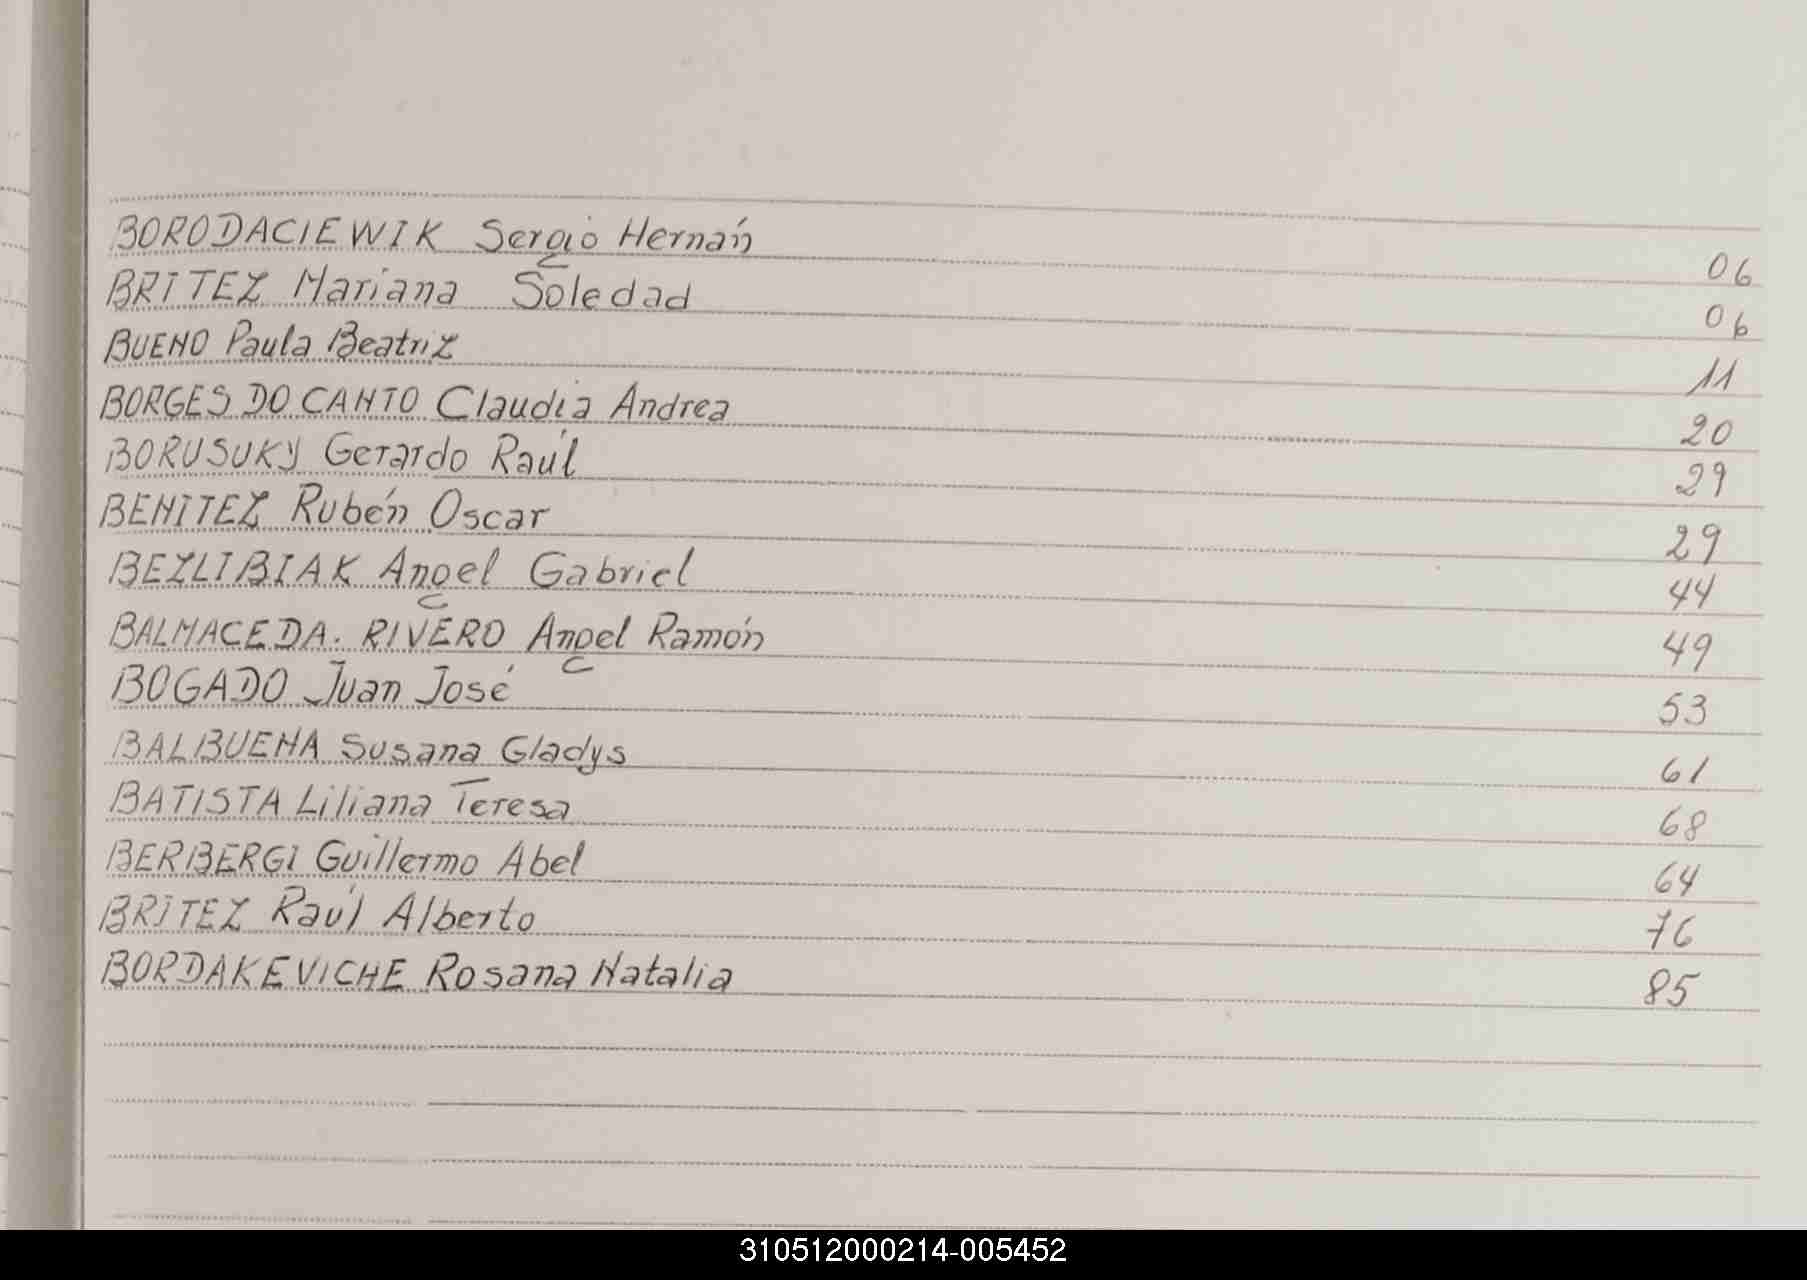 BORODACIEWIK Sergio Hernán 06
BRITEZ Mariana Soledad 06
BUENO Paula Beatriz 11
BORGES DO CANTO Claudia Andrea 20
BORUSUKY Gerardo Raúl 29
BENITEZ Rubén Oscar 29
BEZLIBIAK Angel Gabriel 44
BALMACEDA. RIVERO Angel Ramón 49
BOGADO Juan José 53
BALBUENA Susana Gladys 61
BATISTA Liliana Teresa 68
BERBERGI Guillermo Abel 64
BRITEZ Raúl Alberto 76
BORDAKEVICHE Rosana Natalia 85
310512000214-005452